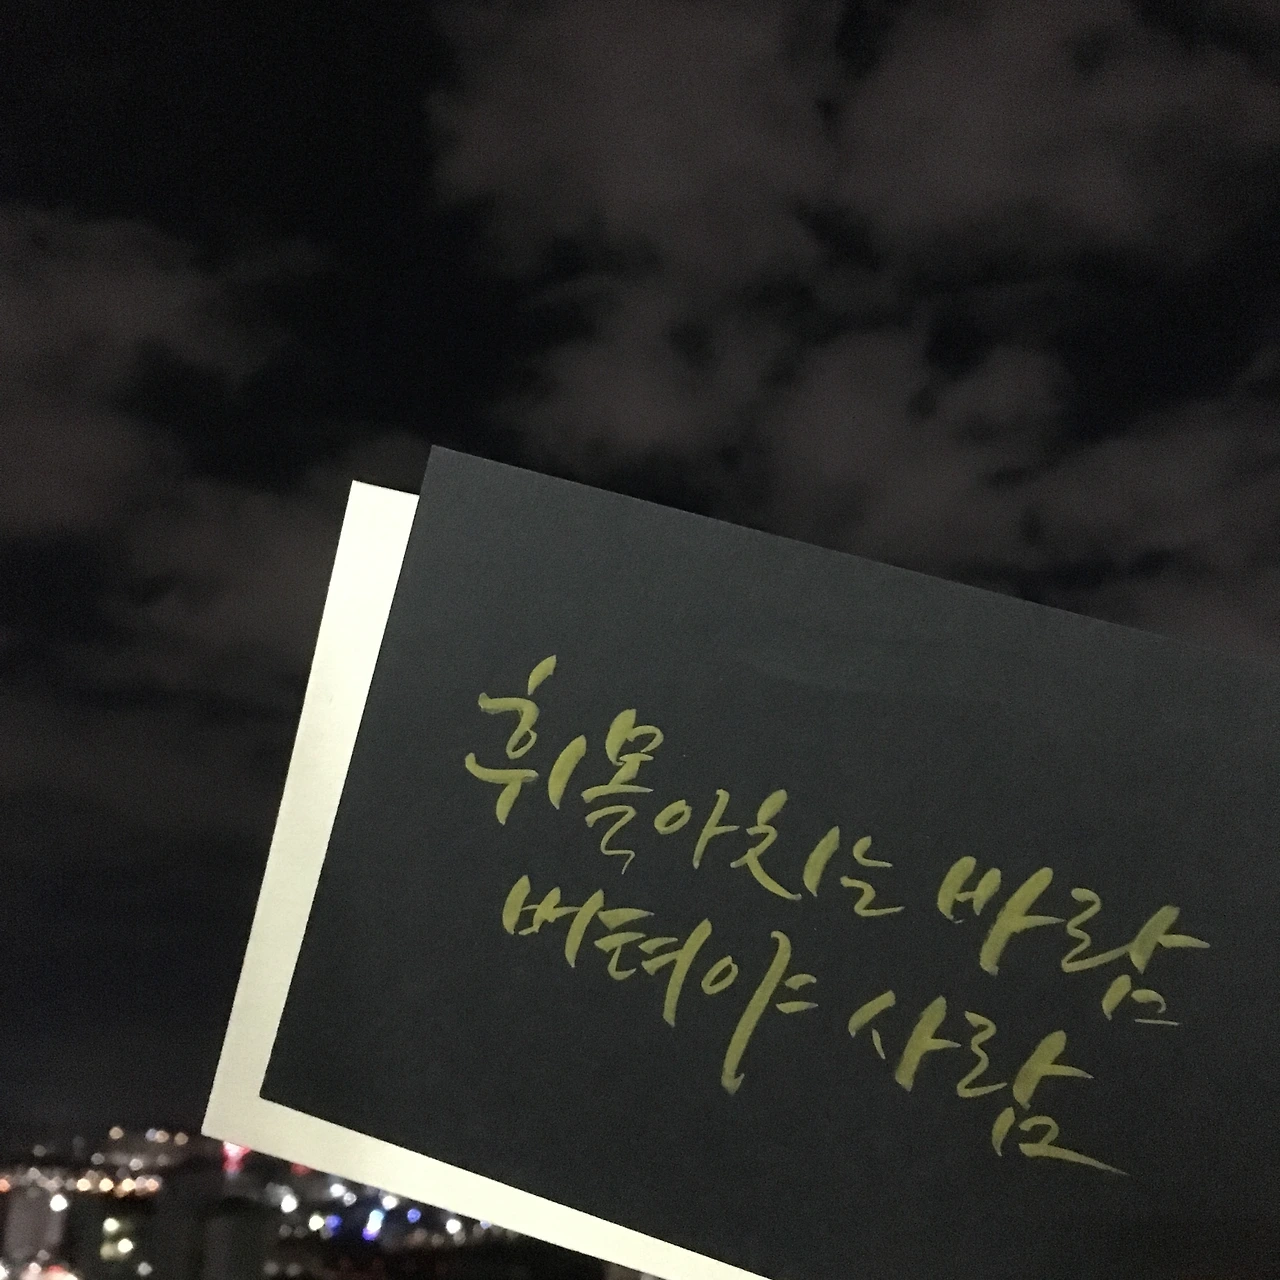 휘몰아치는 바람
버텨야 사람